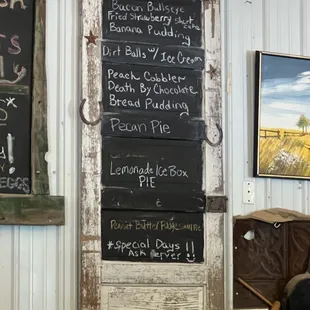 Bacon Bullseye
Fried Strawberry Short
cake
Banana Pudding
Dirt Balls w/ Ice Cream
Peach Cobbler
Death By Chocolate
Bread Pudding
Pecan Pie
Lemonade Ice Box
PIE
Peanut Butter
*Special Days
Ask Server !!
EGGS